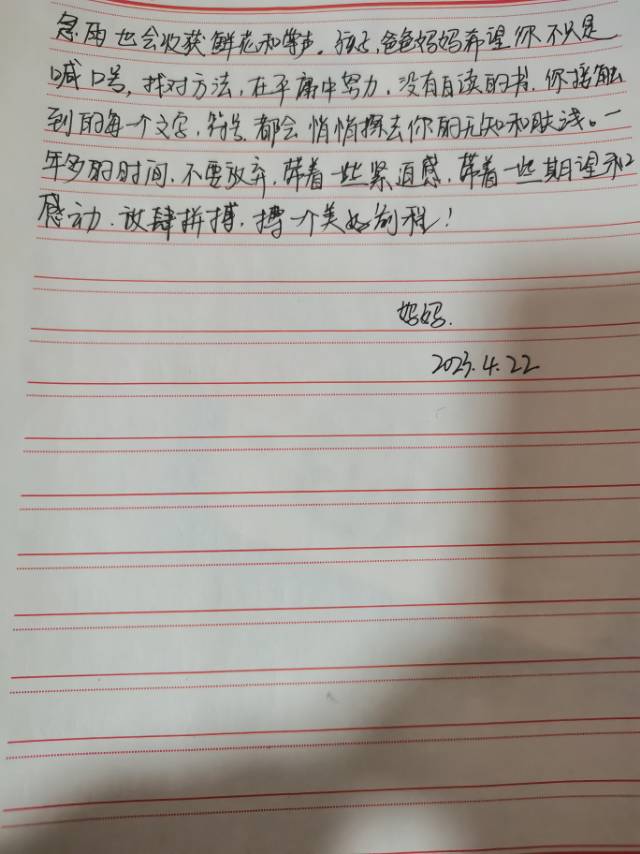 急雨也会收获鲜花和笑声。孩子,爸爸妈妈希望你不只是
喊口号,找对方法,在平庸中努力,没有白读的书,你接触
到的每一个文字,符号都会悄悄擦去你的无知和肤浅。一
年多的时间,不要放弃,带着一些紧迫感,带着一些期望和
感动,放肆拼搏,搏一个美好前程!
妈妈.
2023.4.22